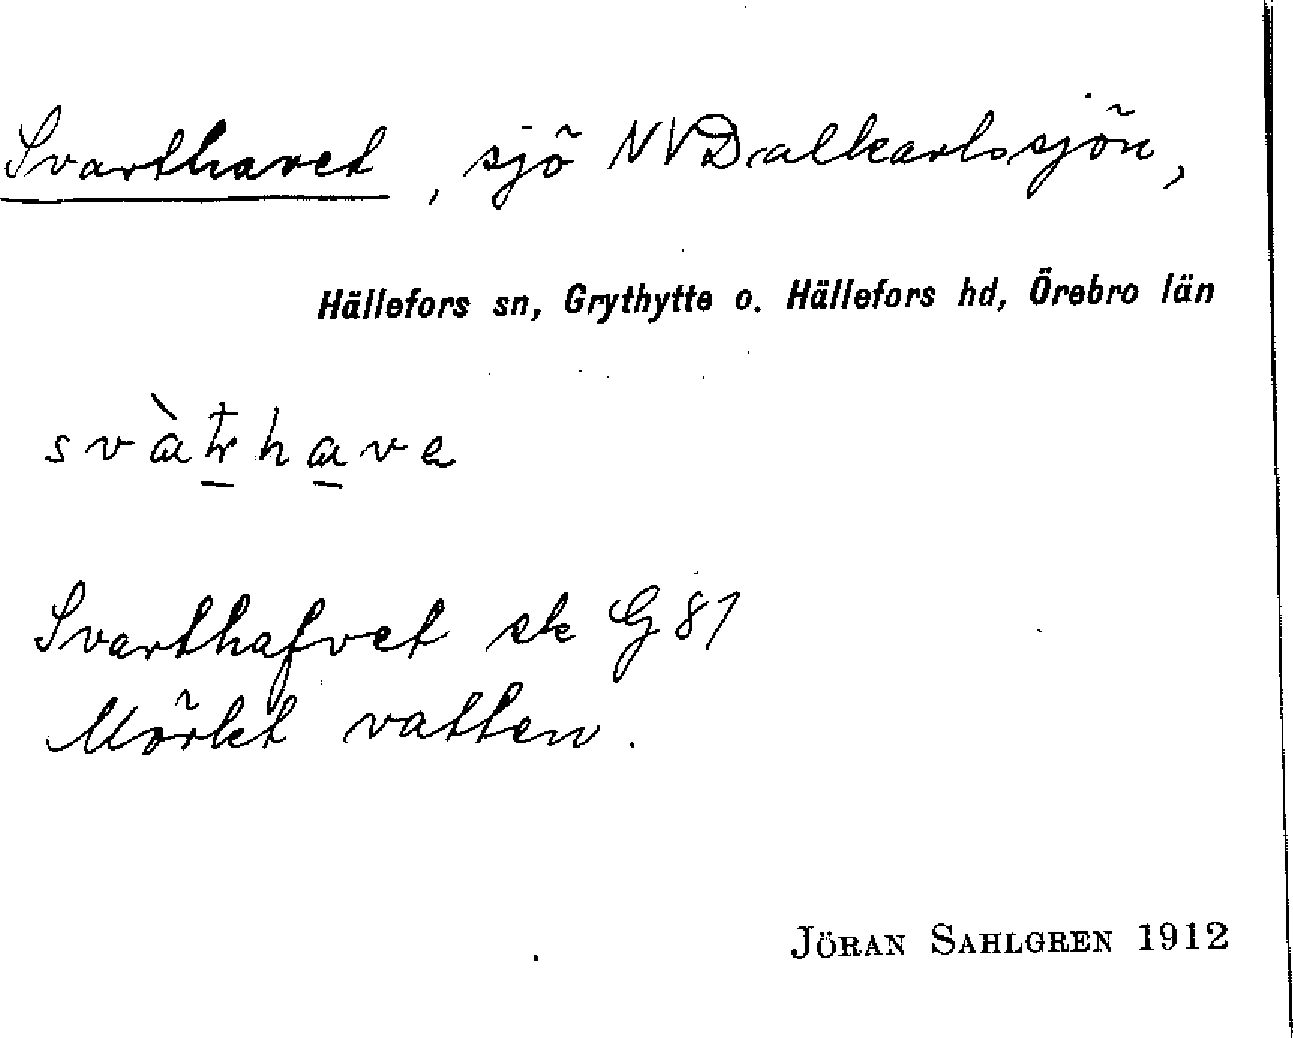 Svarthavet, sjö NV Dalkarlssjön,
Hällefors sn, Grythytte o. Hällefors hd, Örebro län
Svarthafvet sk G 81
Mörkt vatten.
JÖRAN SAHLGREN 1912